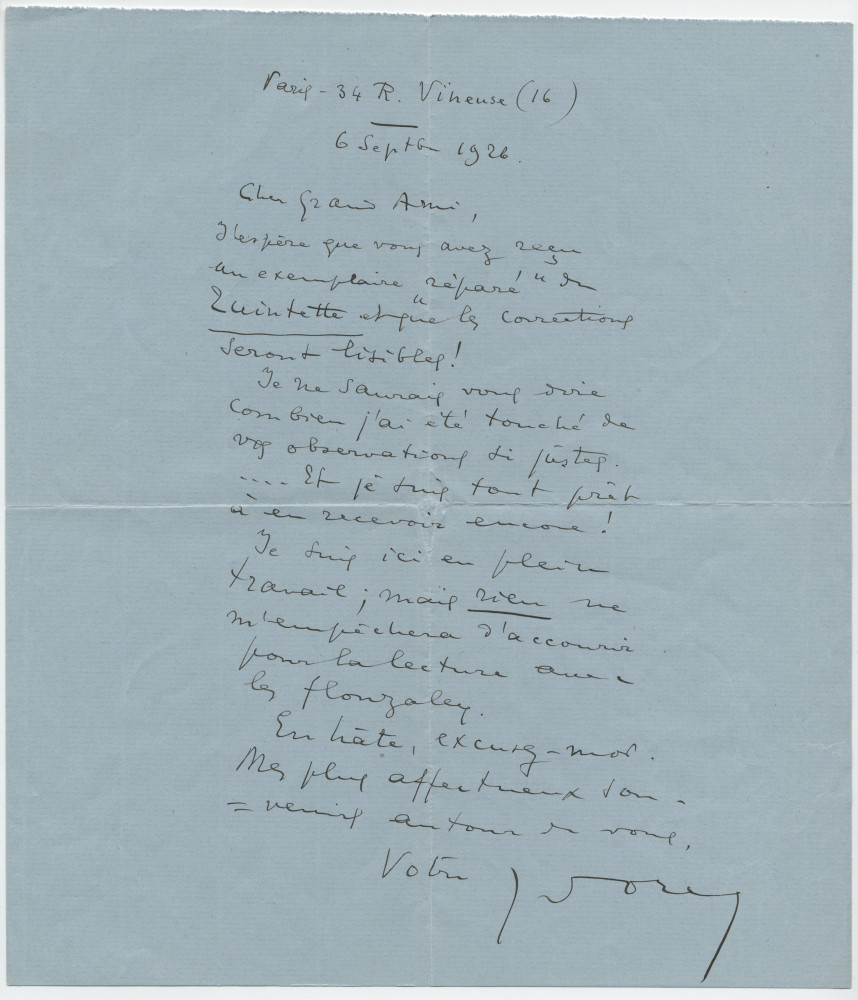 Paris - 34 R. Vineuse (16)
6 Septbre 1926.
Cher Grand Ami,
J'espère que vous avez reçu
un exemplaire "réparé" du
Quintette et que les corrections
seront lisibles!
Je ne saurais vous dire
combien j'ai été touché de
vos observations si justes.
.... Et je suis tout prêt
à en recevoir encore!
Je suis ici en plein
travail; mais rien ne
m'empêchera d'accourir
pour la lecture avec
les flonzaley.
En hâte, excusez-moi.
Mes plus affectueux sou-
=venirs autour de vous,
Votre